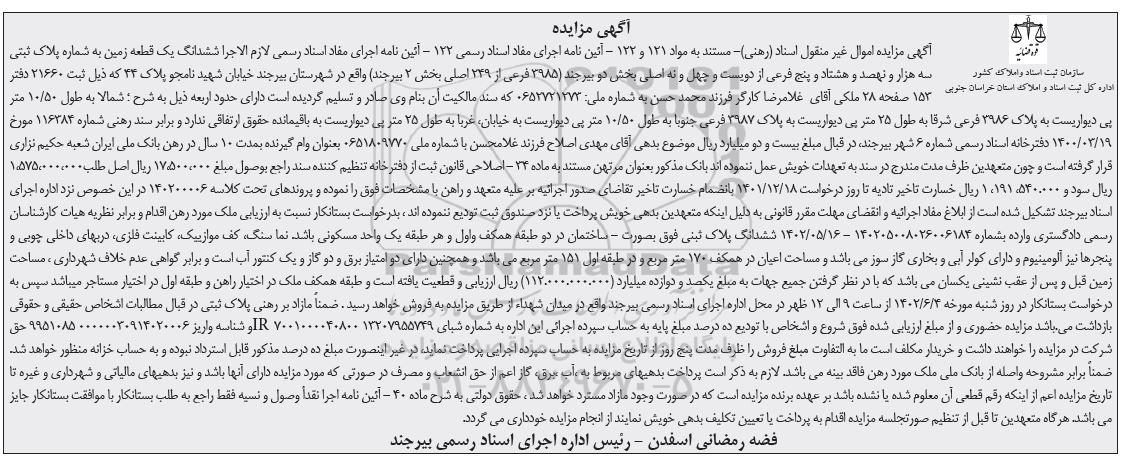 آگهی مزایده
قوه قضائیه
سازمان ثبت اسناد و املاک کشور
اداره کل ثبت اسناد و املاک استان خراسان جنوبی
آگهی مزایده اموال غیر منقول اسناد (رهنی)- مستند به مواد ۱۲۱ و ۱۲۲ - آئین نامه اجرای مفاد اسناد رسمی ۱۲۲ - آئین نامه اجرای مفاد اسناد رسمی لازم الاجرا ششدانگ یک قطعه زمین به شماره پلاک ثبتی
سه هزار و نهصد و هشتاد و پنج فرعی از دویست و چهل و نه اصلی بخش دو بیرجند (۳۹۸۵ فرعی از ۲۴۹ اصلی بخش ۲ بیرجند) واقع در شهرستان بیرجند خیابان شهید نامجو پلاک ۴۴ که ذیل ثبت ۲۱۶۶۰ دفتر
۱۵۳ صفحه ۲۸ ملکی آقای غلامرضا کارگر فرزند محمد حسن به شماره ملی: ۰۶۵۲۷۲۱۲۷۳ که سند مالکیت آن بنام وی صادر و تسلیم گردیده است دارای حدود اربعه ذیل به شرح ؛ شمالا به طول ۱۰/۵۰ متر
پی دیواریست به پلاک ۳۹۸۶ فرعی شرقا به طول ۲۵ متر پی دیواریست به پلاک ۳۹۸۷ فرعی جنوبا به طول ۱۰/۵۰ متر پی دیواریست به خیابان، غربا به طول ۲۵ متر پی دیواریست به باقیمانده حقوق ارتفاقی ندارد و برابر سند رهنی شماره ۱۱۶۳۸۴ مورخ
۱۴۰۰/۰۲/۱۹ دفترخانه اسناد رسمی شماره ۶ شهر بیرجند، در قبال مبلغ بیست و دو میلیارد ریال موضوع بدهی آقای مهدی اصلاح فرزند غلامحسن با شماره ملی ۰۶۵۱۸۰۹۷۷۰ بعنوان وام گیرنده بمدت ۱۰ سال در رهن بانک ملی ایران شعبه حکیم نزاری
قرار گرفته است و چون متعهدین ظرف مدت مندرج در سند به تعهدات خویش عمل ننموده اند بانک مذکور بعنوان مرتهن مستند به ماده ۳۴ - اصلاحی قانون ثبت از دفترخانه تنظیم کننده سند راجع بوصول مبلغ ۱۷،۵۰۰،۰۰۰،۰۰۰ ریال اصل طلب ۱،۵۷۵،۰۰۰،۰۰۰
ریال سود و ۱،۱۹۱،۵۴۰،۰۰۰ ریال خسارت تاخیر تادیه تا روز درخواست ۱۴۰۱/۱۲/۱۸ بانضمام خسارت تاخیر تقاضای صدور اجرائیه بر علیه متعهد و راهن با مشخصات فوق را نموده و پرونده‌ای تحت کلاسه ۱۴۰۲۰۰۰۰۶ در این خصوص نزد اداره اجرای
اسناد بیرجند تشکیل شده است از ابلاغ مفاد اجرائیه و انقضای مهلت مقرر قانونی به دلیل اینکه متعهدین بدهی خویش پرداخت یا نزد صندوق ثبت تودیع ننموده اند ، بدرخواست بستانکار نسبت به ارزیابی ملک مورد رهن اقدام و برابر نظریه هیات کارشناسان
رسمی دادگستری وارده بشماره ۱۴۰۲۰۵۰۰۸۰۲۶۰۰۶۱۸۴ - ۱۴۰۲/۰۵/۱۶ ششدانگ پلاک ثبتی فوق بصورت - ساختمان در دو طبقه همکف واول و هر طبقه یک واحد مسکونی باشد. نما سنگ، کف موازییک، کابینت فلزی، دربهای داخلی چوبی و
پنجرها نیز آلومینیوم و دارای کولر آبی و بخاری گاز سوز می باشد و مساحت اعیان در همکف ۱۷۰ متر مربع و در طبقه اول ۱۵۱ متر مربع می باشد و همچنین دارای دو امتیاز برق و دو گاز و یک کنتور آب است و برابر گواهی عدم خلاف شهرداری ، مساحت
زمین قبل و پس از عقب نشینی یکسان می باشد که با در نظر گرفتن جمیع جهات به مبلغ یکصد و دوازده میلیارد (۱۱۲،۰۰۰،۰۰۰،۰۰۰) ریال ارزیابی و قطعیت یافته است و طبقه همکف ملک در اختیار راهن و طبقه اول در اختیار مستاجر میباشد سپس به
درخواست بستانکار در روز شنبه مورخه ۱۴۰۲/۶/۴ از ساعت ۹ الی ۱۲ ظهر در محل اداره اجرای اسناد رسمی بیرجند واقع در میدان شهداء از طریق مزایده به فروش خواهد رسید . ضمناً مازاد بر رهنی پلاک ثبتی در قبال مطالبات اشخاص حقیقی و حقوقی
بازداشت می‌باشد مزایده حضوری و از مبلغ ارزیابی شده فوق شروع و اشخاص با تودیع ده درصد مبلغ پایه به حساب سپرده اجرائی این اداره به شماره شبای IR ۷۰۰۱۰۰۰۰۴۰۸۰۰ ۱۳۲۰۷۹۵۵۷۴۹و شناسه واریز ۹۹۵۱۰۸۵ ۰۰۰۰۰۰۳۰۹۱۴۰۲۰۰۰۶ حق
شرکت در مزایده را خواهند داشت و خریدار مکلف است ما به التفاوت مبلغ فروش را ظرف مدت پنج روز از تاریخ مزایده به حساب سپرده اجرایی پرداخت نماید، در غیر اینصورت مبلغ ده درصد مذکور قابل استرداد نبوده و به حساب خزانه منظور خواهد شد.
ضمناً برابر مشروحه واصله از بانک ملی ملک مورد رهن فاقد بیمه می باشد. لازم به ذکر است پرداخت بدهیهای مربوط به آب، برق، گاز اعم از حق انشعاب و مصرف در صورتی که مورد مزایده دارای آنها باشد و نیز بدهیهای مالیاتی و شهرداری و غیره تا
تاریخ مزایده اعم از اینکه رقم قطعی آن معلوم شده یا نشده باشد بر عهده برنده مزایده است که در صورت وجود مازاد مسترد خواهد شد ، حقوق دولتی به شرح ماده ۴۰ - آئین نامه اجرا نقداً وصول و نسیه فقط راجع به طلب بستانکار با موافقت بستانکار جایز
می باشد. هرگاه متعهدین تا قبل از تنظیم صورتجلسه مزایده اقدام به پرداخت یا تعیین تکلیف بدهی خویش نمایند از انجام مزایده خودداری می گردد.
فضه رمضانی اسفدن - رئیس اداره اجرای اسناد رسمی بیرجند
ParsNamadData
۰۲۱-۸۸۳۴۹۶۷۰-۵